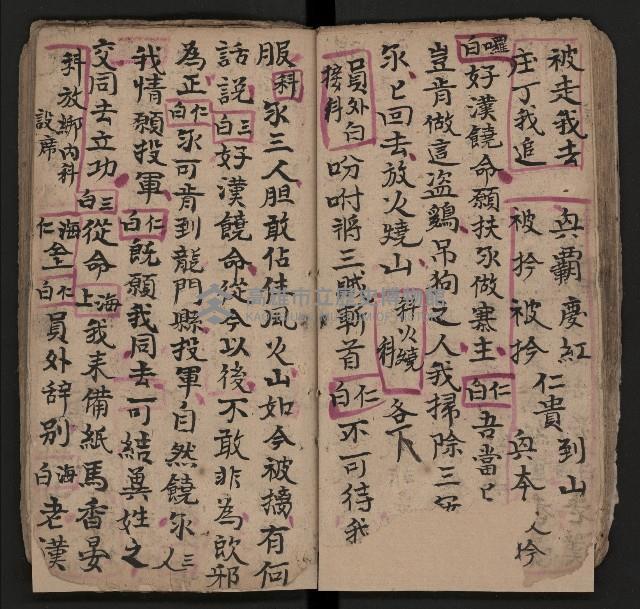 被走我去 與霸慶紅 到山
庄丁我追 被扲被扲 仁貴 與本 人扲
囉白 好漢饒命願扶你做寨主 仁白 吾當
豈肯做這盜鷄吊狗之人我掃除三
你 回去放火燒山 科火繞科 各下
員外白 接科 吩咐將三賊斬首 仁白 不可待我
服 科 你三人胆敢佔住風火山如今被擒有何
話說 三白 好漢饒命從今以後不敢非為欧邪
為正 仁白 你可肯到龍門縣投軍自然饒你 三人
我情願投軍 仁白 既願我同去可結異姓之
交同去立功 三白 從命 海上 我来備紙馬香晏
科放鄉內科 設席 海仁仝 仁白 員外辞別 海白 老漢
高雄市立歷史博物館